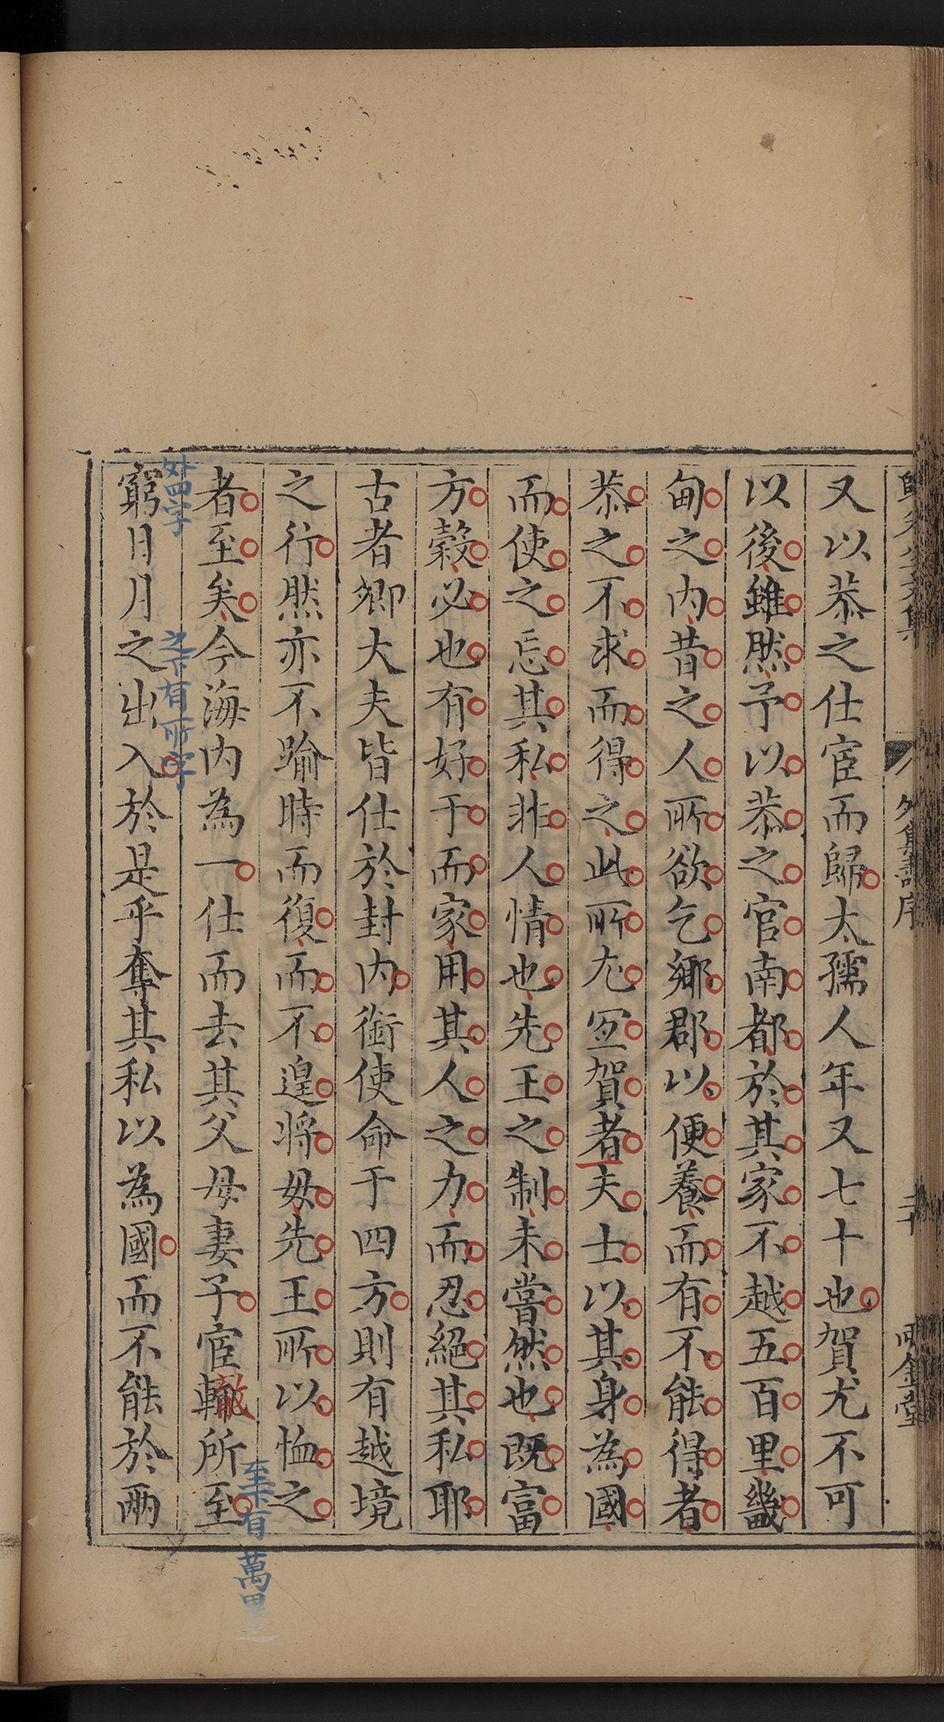 又以恭之仕宦而歸太孺人年又七十也賀尤不可
以後雖然予以恭之官南都於其家不越五百里畿
甸之內昔之人所欲乞鄉郡以便養而有不能得者
恭之不求而得之此所尤宜賀者夫士以其身為國
而使之忘其私非人情也先王之制未嘗然也既富
方穀必也有好于而家用其人之力而忍絕其私耶
古者卿大夫皆仕於封內銜使命于四方則有越境
之行然亦不踰時而復而不遑將母先王所以恤之
者至矣今海內為一仕而去其父母妻子宦轍所至
至下有萬里之
外四字
之下有所字
窮日月之出入於是乎奪其私以為國而不能於兩